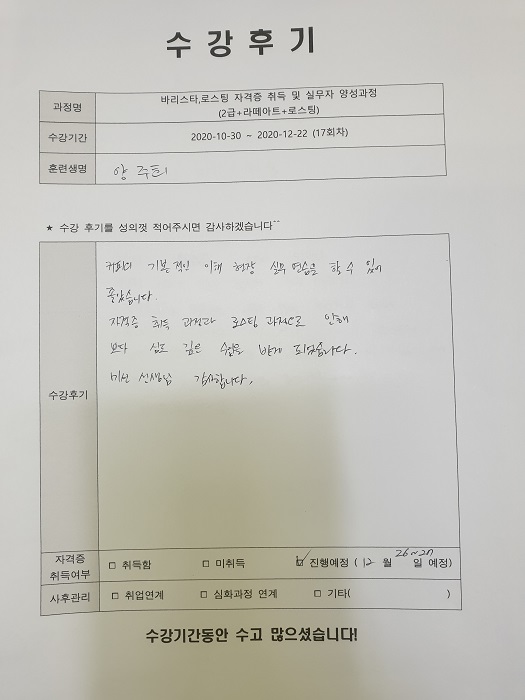 수 강 후 기
과정명 바리스타,로스팅 자격증 취득 및 실무자 양성과정
(2급+라떼아트+로스팅)
수강기간 2020-10-30 ~ 2020-12-22 (17회차)
훈련생명 양 주희
★ 수강 후기를 성의껏 적어주시면 감사하겠습니다^^
수강후기
커피의 기본적인 이해 현장 실무 연습을 할 수 있어
좋았습니다.
자격증 취득 과정과 로스팅 과정으로 인해
보다 심도 깊은 수업을 받게 되었습니다.
미선 선생님 감사합니다.
자격증
취득여부 □ 취득함 □ 미취득 ☑ 진행예정 ( 12 월 26~27 일 예정)
사후관리 □ 취업연계 □ 심화과정 연계 □ 기타( )
수강기간동안 수고 많으셨습니다!